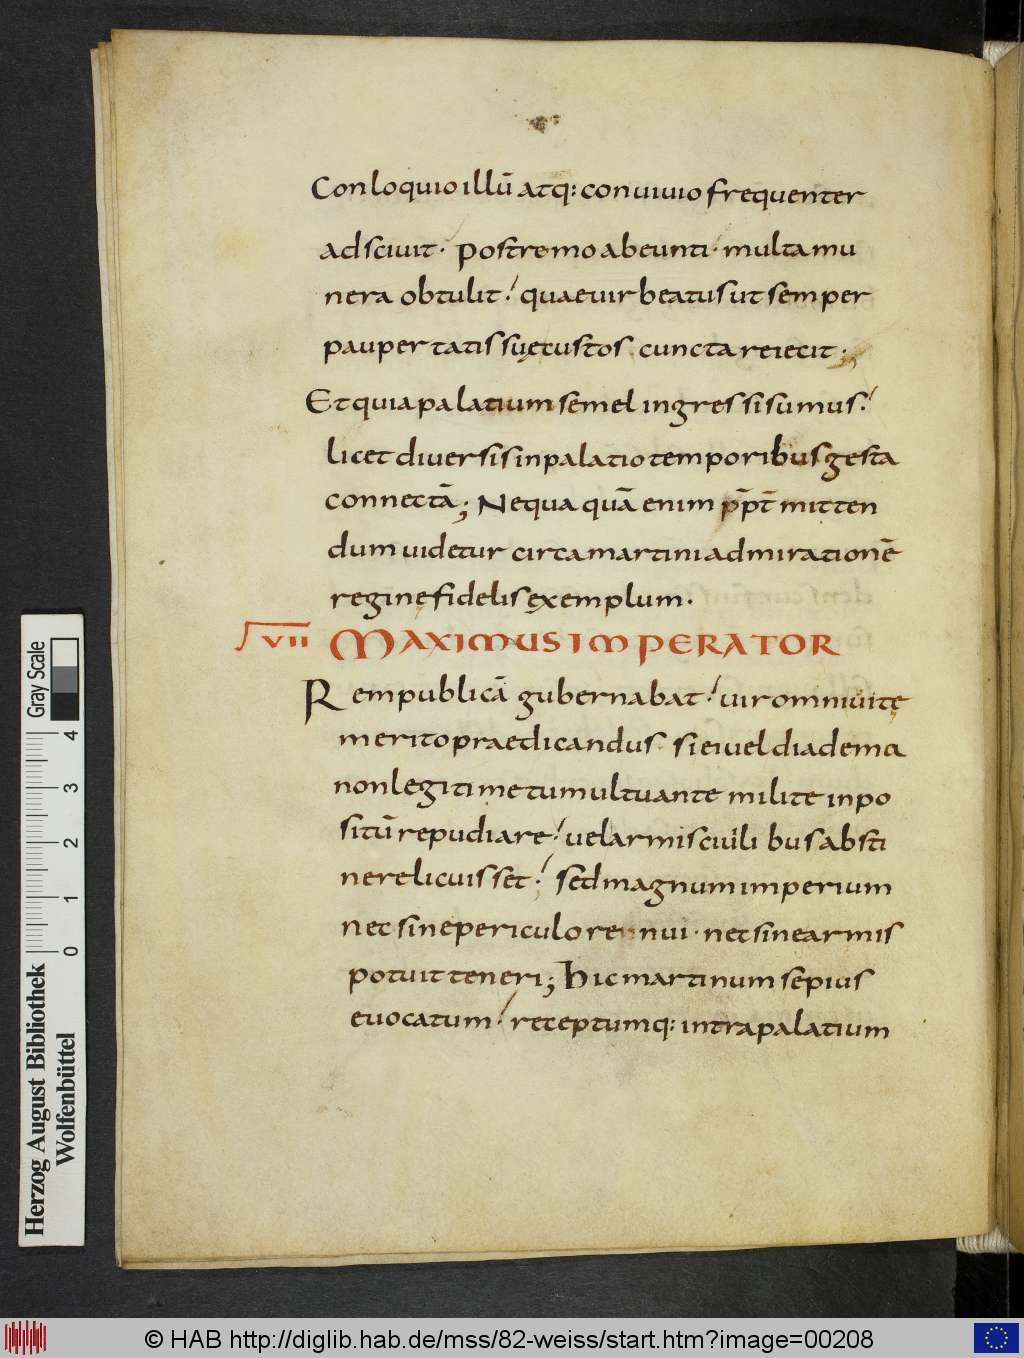 Conloquio illū atq: conuiuio frequenter
adsciuit · postremo abeunti · multa mu
nera obtulit · quae uir beatus ut semper
paupertatis suę custos cuncta reiecit ·
Et quia palatium semel ingressi sumus ·
licet diuersis in palatio temporibus gesta
connectā; Nequaquā enim p̄p̄t mitten
dum uidetur circa martini admirationē
regine fidelis exemplum ·
VII MAXIMUS IMPERATOR
Rempublicā gubernabat · uir omni uite
merito praedicandus · si ei uel diadema
non legitime tumultuante milite inpo
sitū repudiare · uel armis ciuilibus absti
nere licuisset · sed magnum imperium
nec sine periculo rennui · nec sine armis
potuit teneri; hic martinum sepius
euocatum · receptumq: intra palatium
Gray Scale
4
3
2
1
0
Herzog August Bibliothek
Wolfenbüttel
© HAB http://diglib.hab.de/mss/82-weiss/start.htm?image=00208